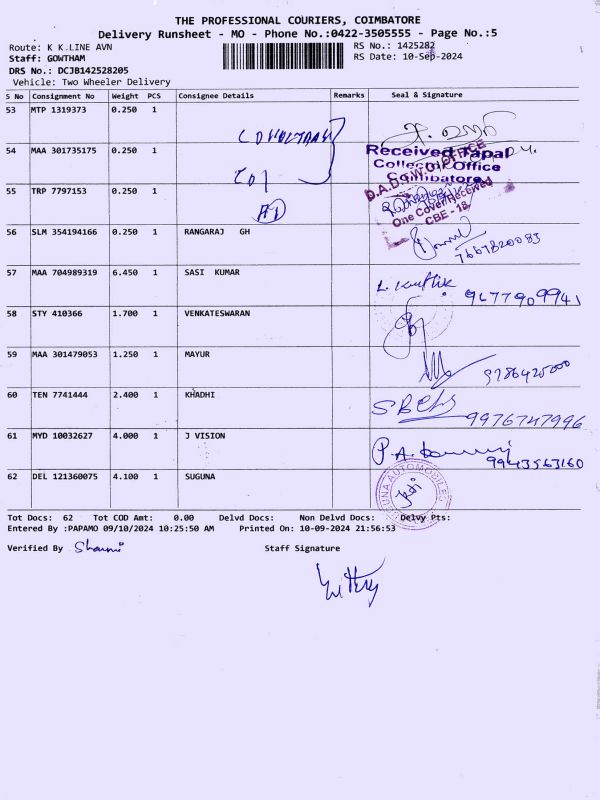 THE PROFESSIONAL COURIERS, COIMBATORE
Delivery Runsheet - MO - Phone No.:0422-3505555 - Page No.:5
Route: K K.LINE AVN
RS No.: 1425282
Staff: GOWTHAM
RS Date: 10-Sep-2024
DRS No.: DCJB142528205
Vehicle: Two Wheeler Delivery
S No Consignment No Weight PCS Consignee Details Remarks Seal & Signature
53 MTP 1319373 0.250 1
54 MAA 301735175 0.250 1
Received Tapal
Collector Office
Coimbatore
D.A.D.W.O. OFFICE
55 TRP 7797153 0.250 1
One Cover Received
CBE - 18
56 SLM 354194166 0.250 1 RANGARAJ GH
7667820083
57 MAA 704989319 6.450 1 SASI KUMAR
L. Karthik 9677909941
58 STY 410366 1.700 1 VENKATESWARAN
59 MAA 301479053 1.250 1 MAYUR
60 TEN 7741444 2.400 1 KHADHI
9976747996
61 MYD 10032627 4.000 1 J VISION
9943563160
62 DEL 121360075 4.100 1 SUGUNA
Tot Docs: 62 Tot COD Amt: 0.00 Delvd Docs: Non Delvd Docs: Delvy Pts:
Entered By :PAPAMO 09/10/2024 10:25:50 AM Printed On: 10-09-2024 21:56:53
Verified By
Staff Signature